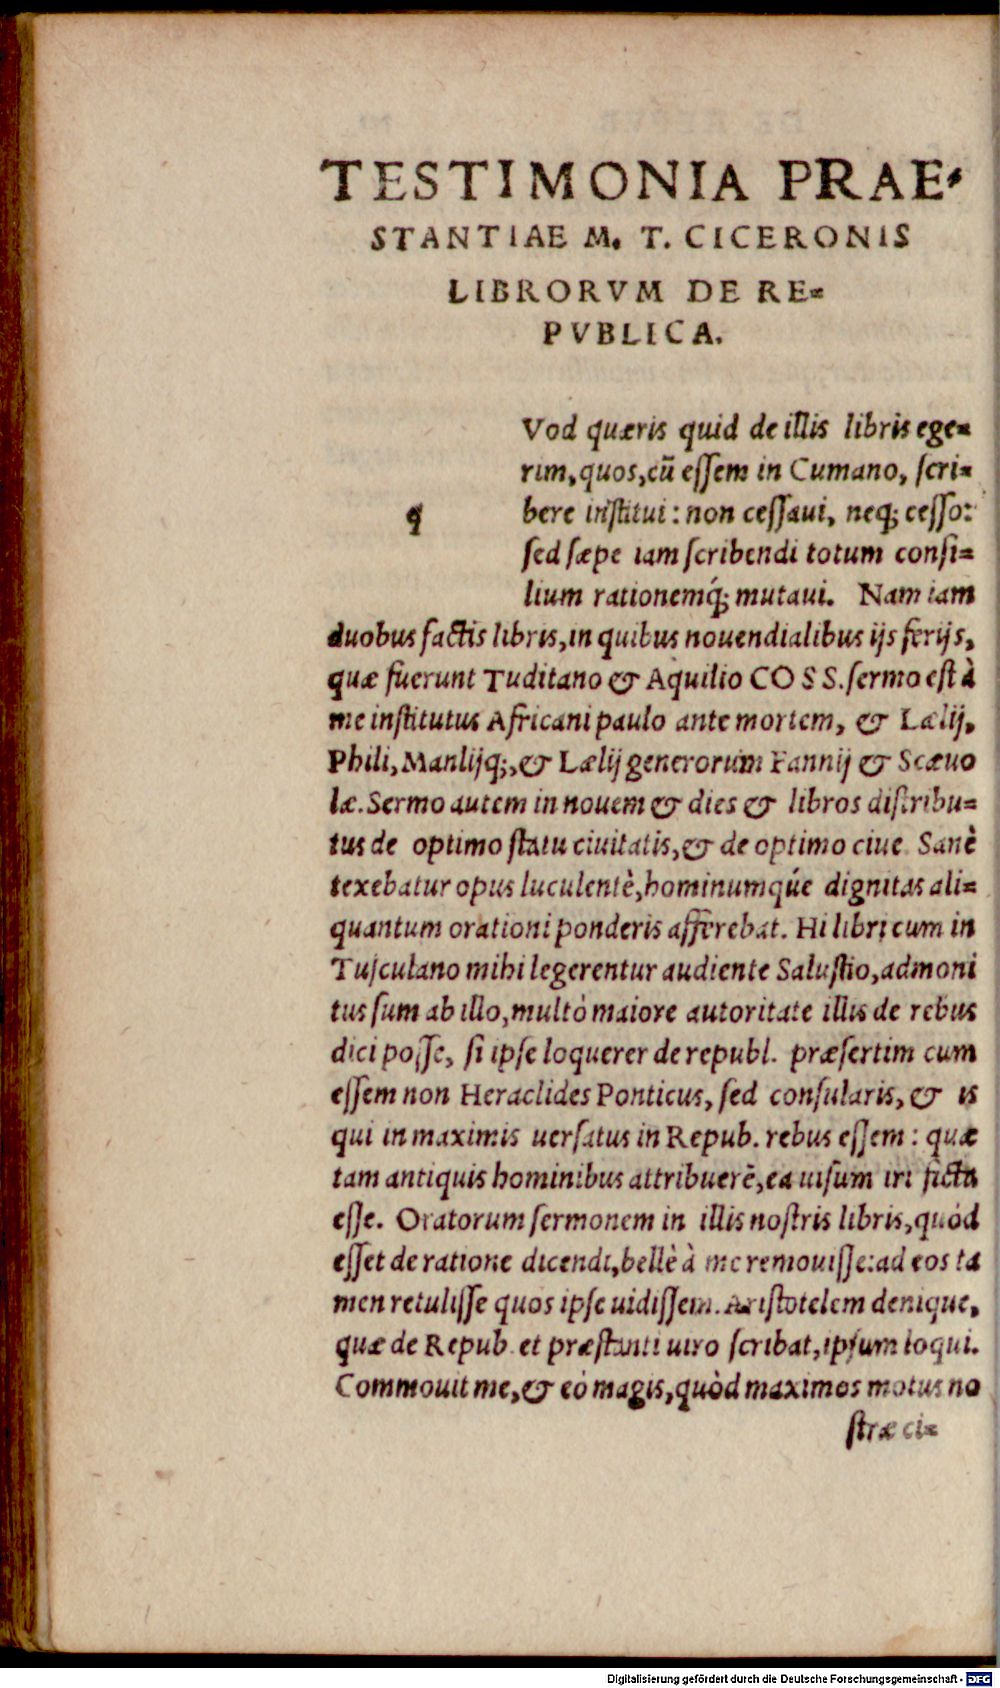 TESTIMONIA PRAE-
STANTIAE M. T. CICERONIS
LIBRORVM DE RE-
PVBLICA.
q Vod quæris quid de illis libris ege-
rim, quos, cū essem in Cumano, scri-
bere institui: non cessaui, neq; cesso:
sed sæpe iam scribendi totum consi-
lium rationemq́; mutaui. Nam iam
duobus factis libris, in quibus nouendialibus ijs ferijs,
quæ fuerunt Tuditano & Aquilio COSS. sermo est à
me institutus Africani paulo ante mortem, & Lælij,
Phili, Manlijq;, & Lælij generorum Fannij & Scæuo
læ. Sermo autem in nouem & dies & libros distribu-
tus de optimo statu ciuitatis, & de optimo ciue. Sanè
texebatur opus luculentè, hominumq́ue dignitas ali-
quantum orationi ponderis afferebat. Hi libri cum in
Tusculano mihi legerentur audiente Salustio, admoni
tus sum ab illo, multò maiore autoritate illis de rebus
dici posse, si ipse loquerer de republ. præsertim cum
essem non Heraclides Ponticus, sed consularis, & is
qui in maximis uersatus in Repub. rebus essem: quæ
tam antiquis hominibus attribuerē, ea uisum iri ficta
esse. Oratorum sermonem in illis nostris libris, quòd
esset de ratione dicendi, bellè à me remouisse: ad eos ta
men retulisse quos ipse uidissem. Aristotelem denique,
quæ de Repub. et præstanti uiro scribat, ipsum loqui.
Commouit me, & eò magis, quòd maximos motus no
stræ ci-
Digitalisierung gefördert durch die Deutsche Forschungsgemeinschaft - DFG